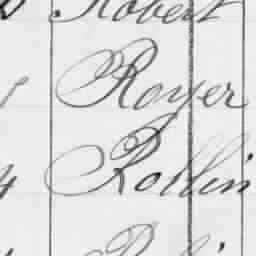 Robert
Royer
Rollin